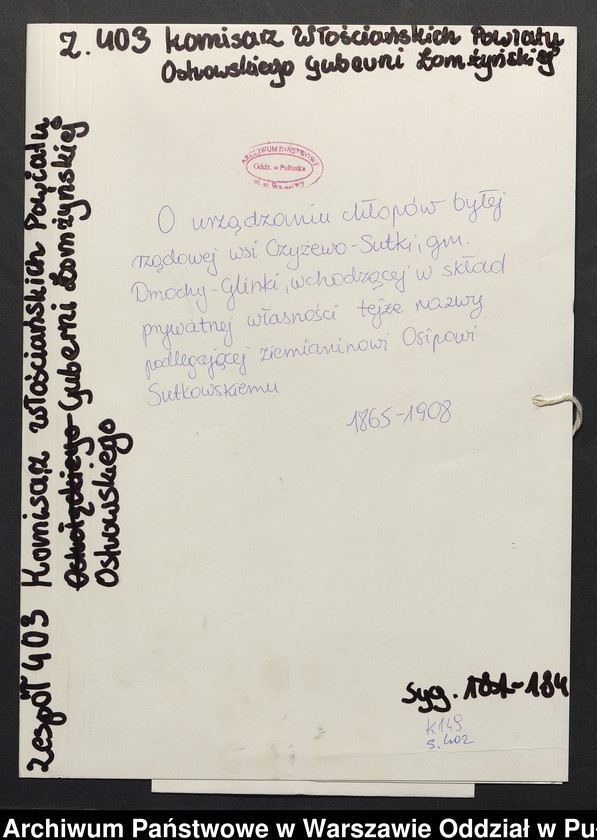 Z. 403 Komisarz Włościańskich Powiatu
Ostrowskiego Guberni Łomżyńskiej
ARCHIWUM PAŃSTWOWE
Oddz. w Pułtusku
m. st. Warszawy
O urządzaniu chłopów byłej
rządowej wsi Czyżewo-Sutki, gm.
Dmochy-Glinki, wchodzącej w skład
prywatnej własności tejże nazwy
podlegającej ziemianinowi Osipowi
Sutkowskiemu
1865-1908
Zespół 403 Komisarz Włościańskich Powiatu
Guberni Łomżyńskiej
Ostrowskiego
Syg. 181-184
K149
S.402
Archiwum Państwowe w Warszawie Oddział w Pu